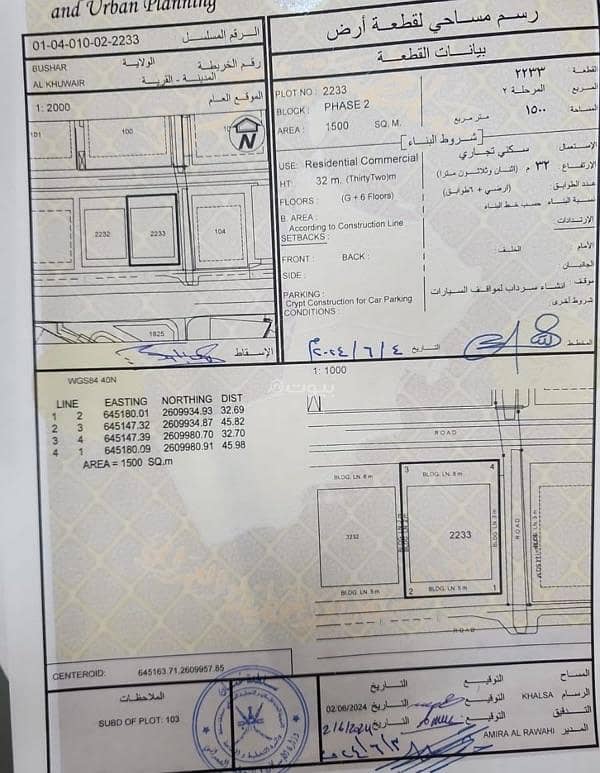 and Urban Planning
رسم مساحي لقطعة أرض
بيانات القطعة
01-04-010-02-2233
الرقم المسلسل
BUSHAR
الولاية
رقم الخريطة
AL KHUWAIR
المدينة - القرية
1: 2000
الموقع العام
101
100
N
2232
2233
104
1825
الإسقاط
PLOT NO : 2233
٢٢٣٣
القطعة
BLOCK : PHASE 2
المرحلة ٢
المربع
AREA : 1500 SQ. M.
متر مربع
١٥٠٠
المساحة
شروط البناء
USE: Residential Commercial
سكني تجاري
الإستعمال
HT: 32 m. (ThirtyTwo)m
٣٢ م (اثنان وثلاثون مترا)
الارتفاع
FLOORS : (G + 6 Floors)
(أرضي + ٦طوابق)
عدد الطوابق
B. AREA :
According to Construction Line
نسبة البناء حسب خط البناء
SETBACKS :
الإرتدادات
FRONT : BACK :
الخلف:
الأمام
SIDE :
الجانبان
PARKING :
Crypt Construction for Car Parking
انشاء سرداب لمواقف السيارات
موقف
CONDITIONS :
شروط أخرى:
٢٠٢٤/٦/٤
التاريخ
المخطط
WGS84 40N
1: 1000
LINE EASTING NORTHING DIST
1 2 645180.01 2609934.93 32.69
2 3 645147.32 2609934.87 45.82
3 4 645147.39 2609980.70 32.70
4 1 645180.09 2609980.91 45.98
AREA = 1500 SQ.m
ROAD
BLDG. LN. 8 m
BLDG. LN. 8 m
3
4
3232
2233
BLDG. LN. 3 m
ROAD
BLDG. LN. 5 m
BLDG. LN. 5 m
2
1
ROAD
CENTEROID: 645163.71,2609957.85
الملاحظات
SUBD OF PLOT: 103
التاريخ
التوقيع
المساح
02/06/2024
التوقيع
KHALSA
الرسام
2/6/2024
التاريخ
التوقيع
التدقيق
التوقيع
AMIRA AL RAWAHI
المدير